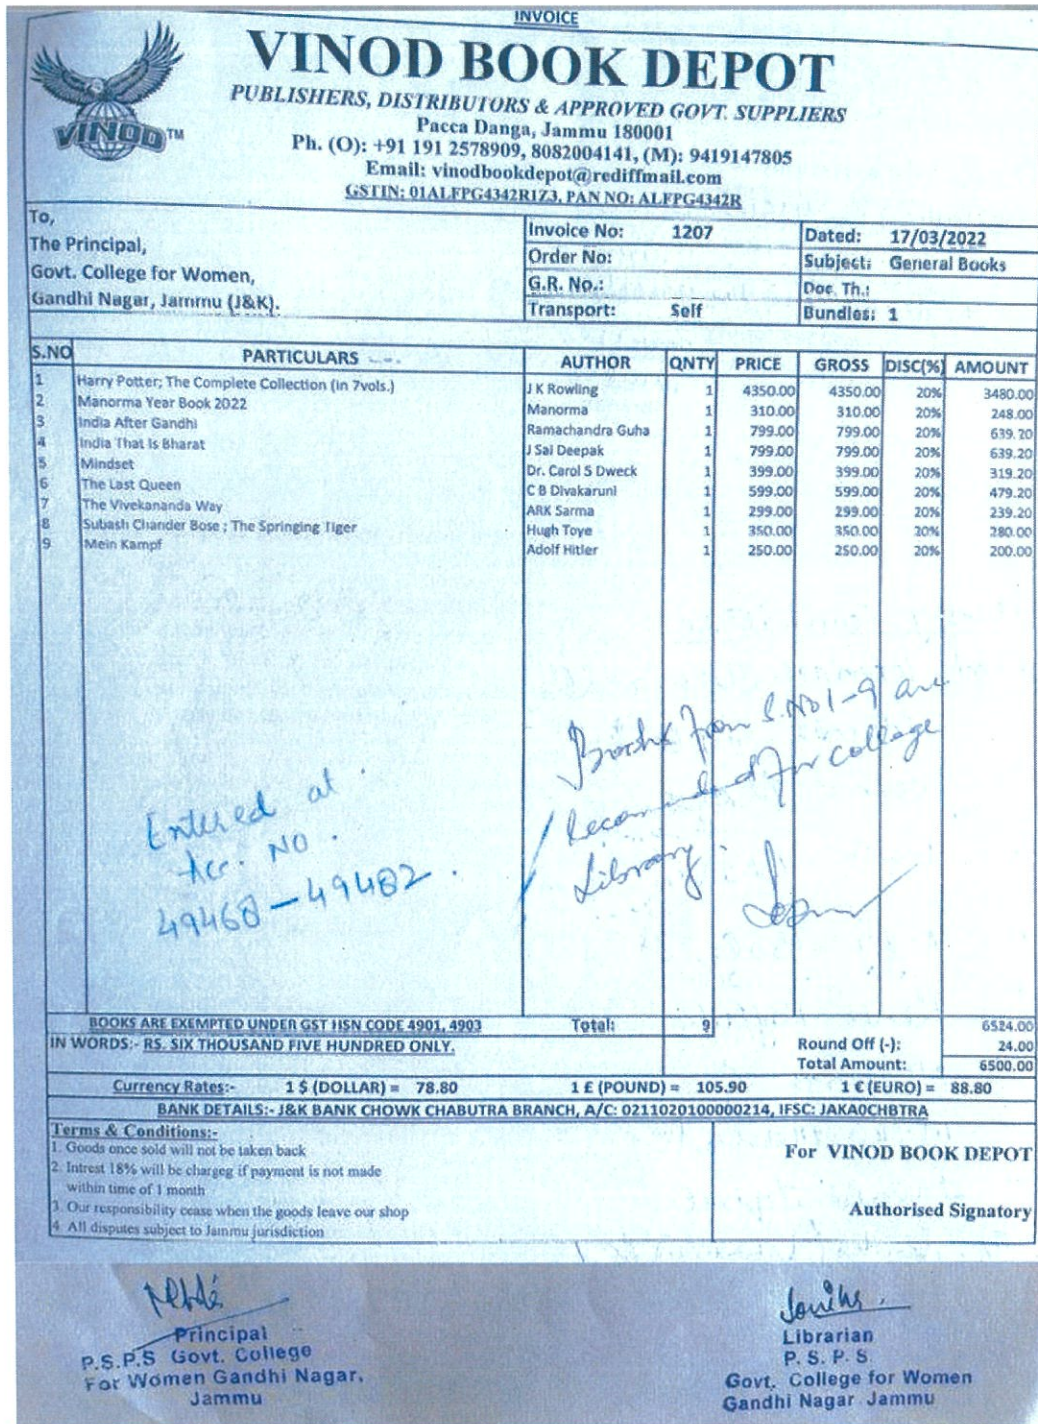 INVOICE
VINOD BOOK DEPOT
PUBLISHERS, DISTRIBUTORS & APPROVED GOVT. SUPPLIERS
Pacca Danga, Jammu 180001
Ph. (O): +91 191 2578909, 8082004141, (M): 9419147805
Email: vinodbookdepot@rediffmail.com
GSTIN: 01ALFPG4342R1Z3, PAN NO: ALFPG4342R
VINOD TM
To,
The Principal,
Govt. College for Women,
Gandhi Nagar, Jammu (J&K).
Invoice No: 1207 Dated: 17/03/2022
Order No: Subject: General Books
G.R. No.: Doc. Th.:
Transport: Self Bundles: 1
S.NO PARTICULARS AUTHOR QNTY PRICE GROSS DISC(%) AMOUNT
1 Harry Potter; The Complete Collection (in 7vols.) J K Rowling 1 4350.00 4350.00 20% 3480.00
2 Manorma Year Book 2022 Manorma 1 310.00 310.00 20% 248.00
3 India After Gandhi Ramachandra Guha 1 799.00 799.00 20% 639.20
4 India That Is Bharat J Sai Deepak 1 799.00 799.00 20% 639.20
5 Mindset Dr. Carol S Dweck 1 399.00 399.00 20% 319.20
6 The Last Queen C B Divakaruni 1 599.00 599.00 20% 479.20
7 The Vivekananda Way ARK Sarma 1 299.00 299.00 20% 239.20
8 Subash Chander Bose ; The Springing Tiger Hugh Toye 1 350.00 350.00 20% 280.00
9 Mein Kampf Adolf Hitler 1 250.00 250.00 20% 200.00
Books from S.No 1-9 are
Recommended for college
Library.
Entered at
Acc. NO.
49468-49482.
BOOKS ARE EXEMPTED UNDER GST HSN CODE 4901, 4903 Total: 9 6524.00
IN WORDS:- RS. SIX THOUSAND FIVE HUNDRED ONLY. Round Off (-): 24.00
Total Amount: 6500.00
Currency Rates:- 1 $ (DOLLAR) = 78.80 1 £ (POUND) = 105.90 1 € (EURO) = 88.80
BANK DETAILS:- J&K BANK CHOWK CHABUTRA BRANCH, A/C: 0211020100000214, IFSC: JAKA0CHBTRA
Terms & Conditions:-
1. Goods once sold will not be taken back
2. Intrest 18% will be chargeg if payment is not made
within time of 1 month
3. Our responsibility cease when the goods leave our shop
4. All disputes subject to Jammu jurisdiction
For VINOD BOOK DEPOT
Authorised Signatory
Principal
P.S.P.S Govt. College
For Women Gandhi Nagar,
Jammu
Librarian
P. S. P. S.
Govt. College for Women
Gandhi Nagar Jammu